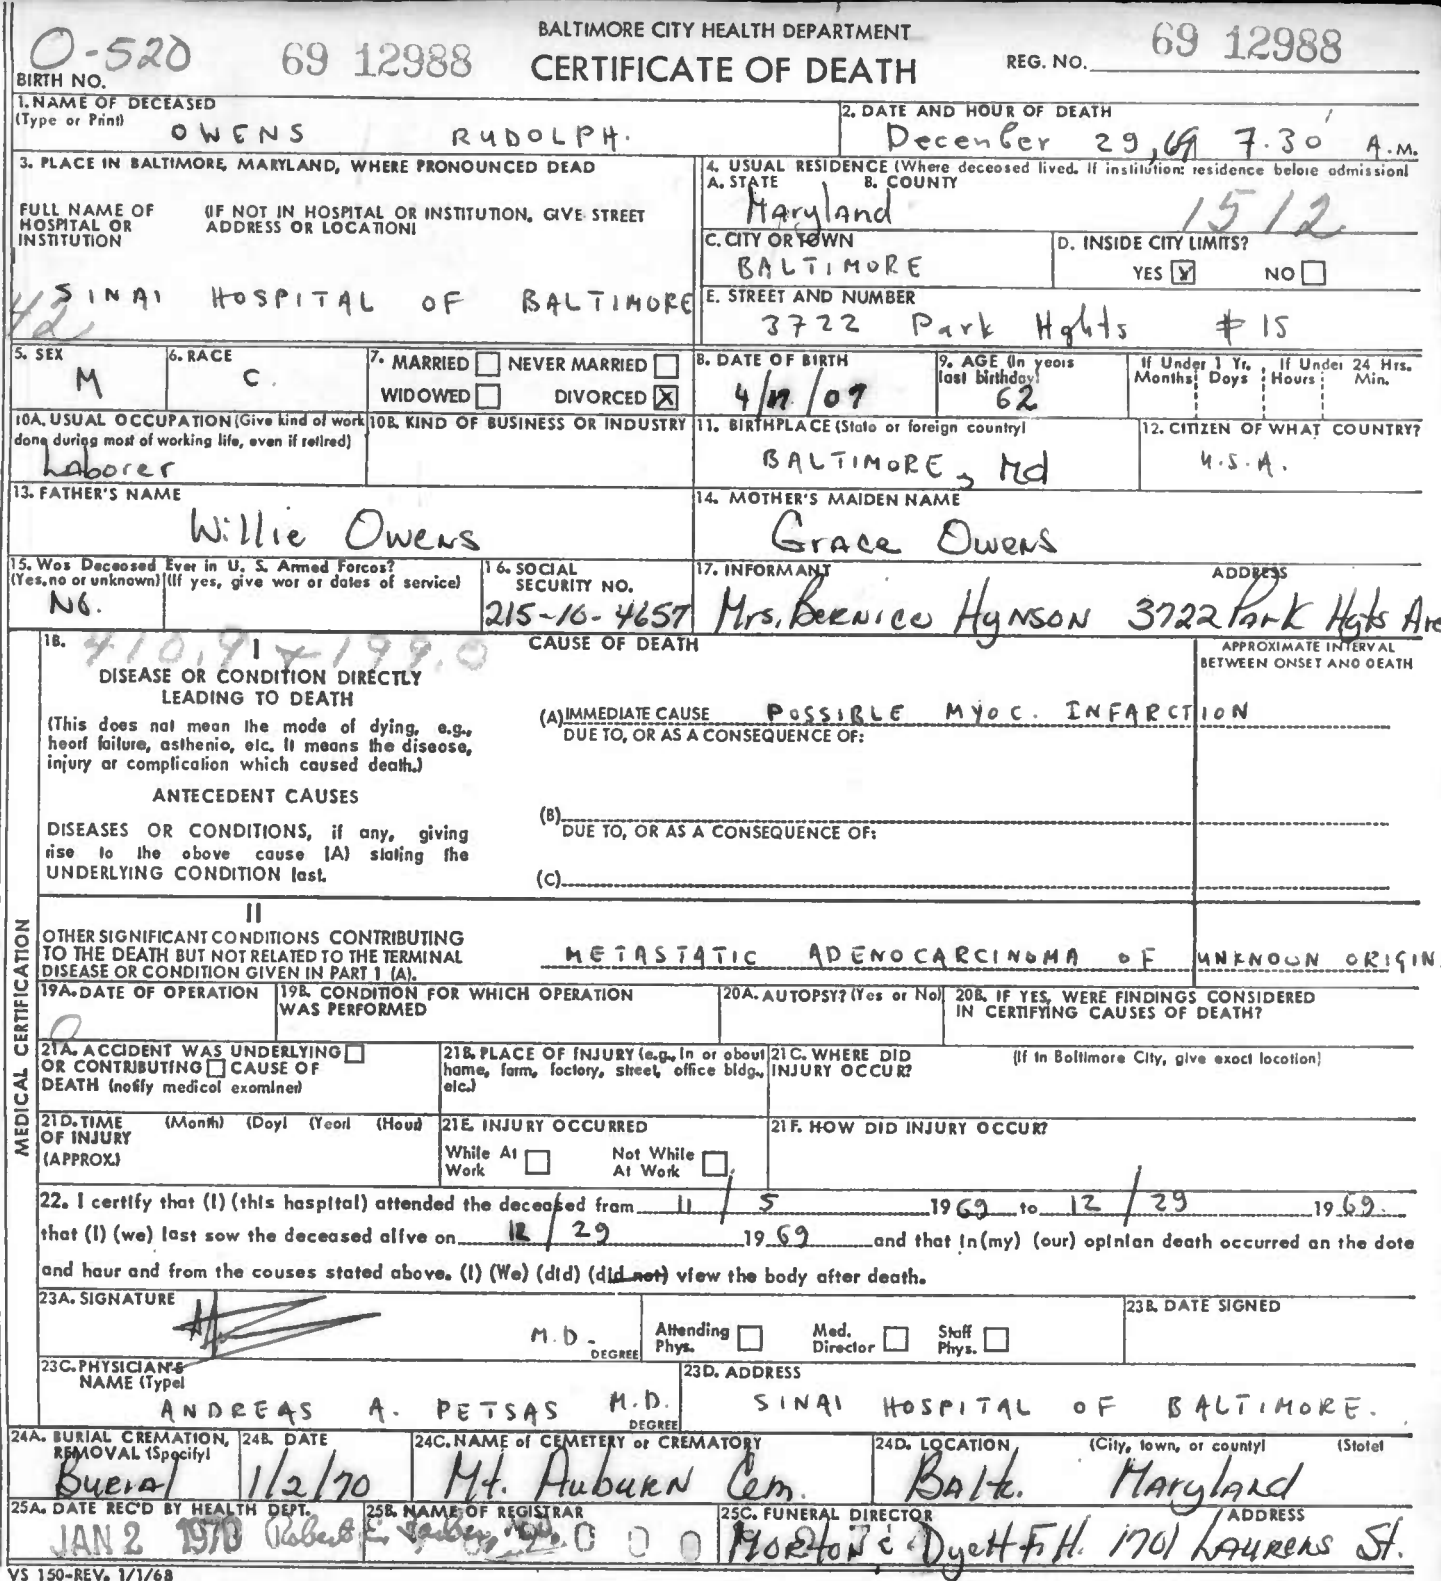 BALTIMORE CITY HEALTH DEPARTMENT
O-520 69 12988 CERTIFICATE OF DEATH REG. NO. 69 12988
BIRTH NO.
1. NAME OF DECEASED (Type or Print) OWENS RUDOLPH.
2. DATE AND HOUR OF DEATH December 29, 69 7.30 A.M.
3. PLACE IN BALTIMORE, MARYLAND, WHERE PRONOUNCED DEAD
FULL NAME OF HOSPITAL OR INSTITUTION (IF NOT IN HOSPITAL OR INSTITUTION, GIVE STREET ADDRESS OR LOCATION)
SINAI HOSPITAL OF BALTIMORE
42
4. USUAL RESIDENCE (Where deceased lived. If institution: residence before admission)
A. STATE Maryland B. COUNTY 1512
C. CITY OR TOWN BALTIMORE
D. INSIDE CITY LIMITS? YES X NO
E. STREET AND NUMBER 3722 Park Hghts #15
5. SEX M
6. RACE C.
7. MARRIED NEVER MARRIED
WIDOWED DIVORCED X
8. DATE OF BIRTH 4/ /07
9. AGE (In years last birthday) 62
If Under 1 Yr. Months Days If Under 24 Hrs. Hours Min.
10A. USUAL OCCUPATION (Give kind of work done during most of working life, even if retired) Laborer
10B. KIND OF BUSINESS OR INDUSTRY
11. BIRTHPLACE (State or foreign country) BALTIMORE, Md
12. CITIZEN OF WHAT COUNTRY? U.S.A.
13. FATHER'S NAME Willie Owens
14. MOTHER'S MAIDEN NAME Grace Owens
15. Was Deceased Ever in U. S. Armed Forces? (Yes, no or unknown) (If yes, give war or dates of service) No.
16. SOCIAL SECURITY NO. 215-16-4657
17. INFORMANT ADDRESS Mrs. Bernice Hynson 3722 Park Hgts Ave
MEDICAL CERTIFICATION
18. 410.9 + 199.0 CAUSE OF DEATH
APPROXIMATE INTERVAL BETWEEN ONSET AND DEATH
I
DISEASE OR CONDITION DIRECTLY LEADING TO DEATH
(This does not mean the mode of dying, e.g., heart failure, asthenia, etc. It means the disease, injury or complication which caused death.)
(A) IMMEDIATE CAUSE POSSIBLE MYOC. INFARCTION
DUE TO, OR AS A CONSEQUENCE OF:
ANTECEDENT CAUSES
DISEASES OR CONDITIONS, if any, giving rise to the above cause (A) stating the UNDERLYING CONDITION last.
(B)
DUE TO, OR AS A CONSEQUENCE OF:
(C)
II
OTHER SIGNIFICANT CONDITIONS CONTRIBUTING TO THE DEATH BUT NOT RELATED TO THE TERMINAL DISEASE OR CONDITION GIVEN IN PART 1 (A).
METASTATIC ADENOCARCINOMA OF UNKNOWN ORIGIN.
19A. DATE OF OPERATION 0
19B. CONDITION FOR WHICH OPERATION WAS PERFORMED
20A. AUTOPSY? (Yes or No)
20B. IF YES, WERE FINDINGS CONSIDERED IN CERTIFYING CAUSES OF DEATH?
21A. ACCIDENT WAS UNDERLYING OR CONTRIBUTING CAUSE OF DEATH (notify medical examiner)
21B. PLACE OF INJURY (e.g., in or about home, farm, factory, street, office bldg., etc.)
21C. WHERE DID INJURY OCCUR? (If in Baltimore City, give exact location)
21D. TIME OF INJURY (APPROX.) (Month) (Day) (Year) (Hour)
21E. INJURY OCCURRED While At Work Not While At Work
21F. HOW DID INJURY OCCUR?
22. I certify that (I) (this hospital) attended the deceased from 11/5 1969 to 12/29 1969.
that (I) (we) last saw the deceased alive on 12/29 1969 and that in (my) (our) opinion death occurred on the date
and hour and from the causes stated above. (I) (We) (did) (did not) view the body after death.
23A. SIGNATURE M.D. DEGREE
Attending Phys. Med. Director Staff Phys.
23B. DATE SIGNED
23C. PHYSICIAN'S NAME (Type) ANDREAS A. PETSAS M.D. DEGREE
23D. ADDRESS SINAI HOSPITAL OF BALTIMORE.
24A. BURIAL, CREMATION, REMOVAL (Specify) Burial
24B. DATE 1/2/70
24C. NAME of CEMETERY or CREMATORY Mt. Auburn Cem.
24D. LOCATION (City, town, or county) (State) Balto. Maryland
25A. DATE REC'D BY HEALTH DEPT. JAN 2 1970
25B. NAME OF REGISTRAR Robert E. Farber, M.D.
25C. FUNERAL DIRECTOR ADDRESS Morton & Dyett F.H. 1701 Laurens St.
VS 150-REV. 1/1/68